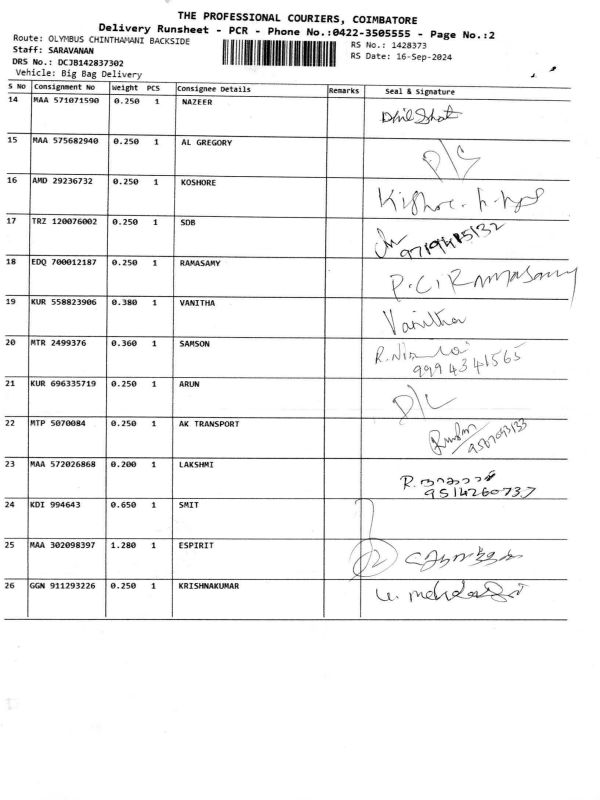 THE PROFESSIONAL COURIERS, COIMBATORE
Delivery Runsheet - PCR - Phone No.:0422-3505555 - Page No.:2
Route: OLYMBUS CHINTHAMANI BACKSIDE
RS No.: 1428373
Staff: SARAVANAN
RS Date: 16-Sep-2024
DRS No.: DCJB142837302
Vehicle: Big Bag Delivery
S No Consignment No Weight PCS Consignee Details Remarks Seal & Signature
14 MAA 571071590 0.250 1 NAZEER
15 MAA 575682940 0.250 1 AL GREGORY D/L
16 AMD 29236732 0.250 1 KOSHORE
17 TRZ 120076002 0.250 1 SDB
18 EDQ 700012187 0.250 1 RAMASAMY P.C. Ramasamy
19 KUR 558823906 0.380 1 VANITHA Vanitha
20 MTR 2499376 0.360 1 SAMSON
9994341565
21 KUR 696335719 0.250 1 ARUN D/L
22 MTP 5070084 0.250 1 AK TRANSPORT
23 MAA 572026868 0.200 1 LAKSHMI
9514260737
24 KDI 994643 0.650 1 SMIT
25 MAA 302098397 1.280 1 ESPIRIT
26 GGN 911293226 0.250 1 KRISHNAKUMAR